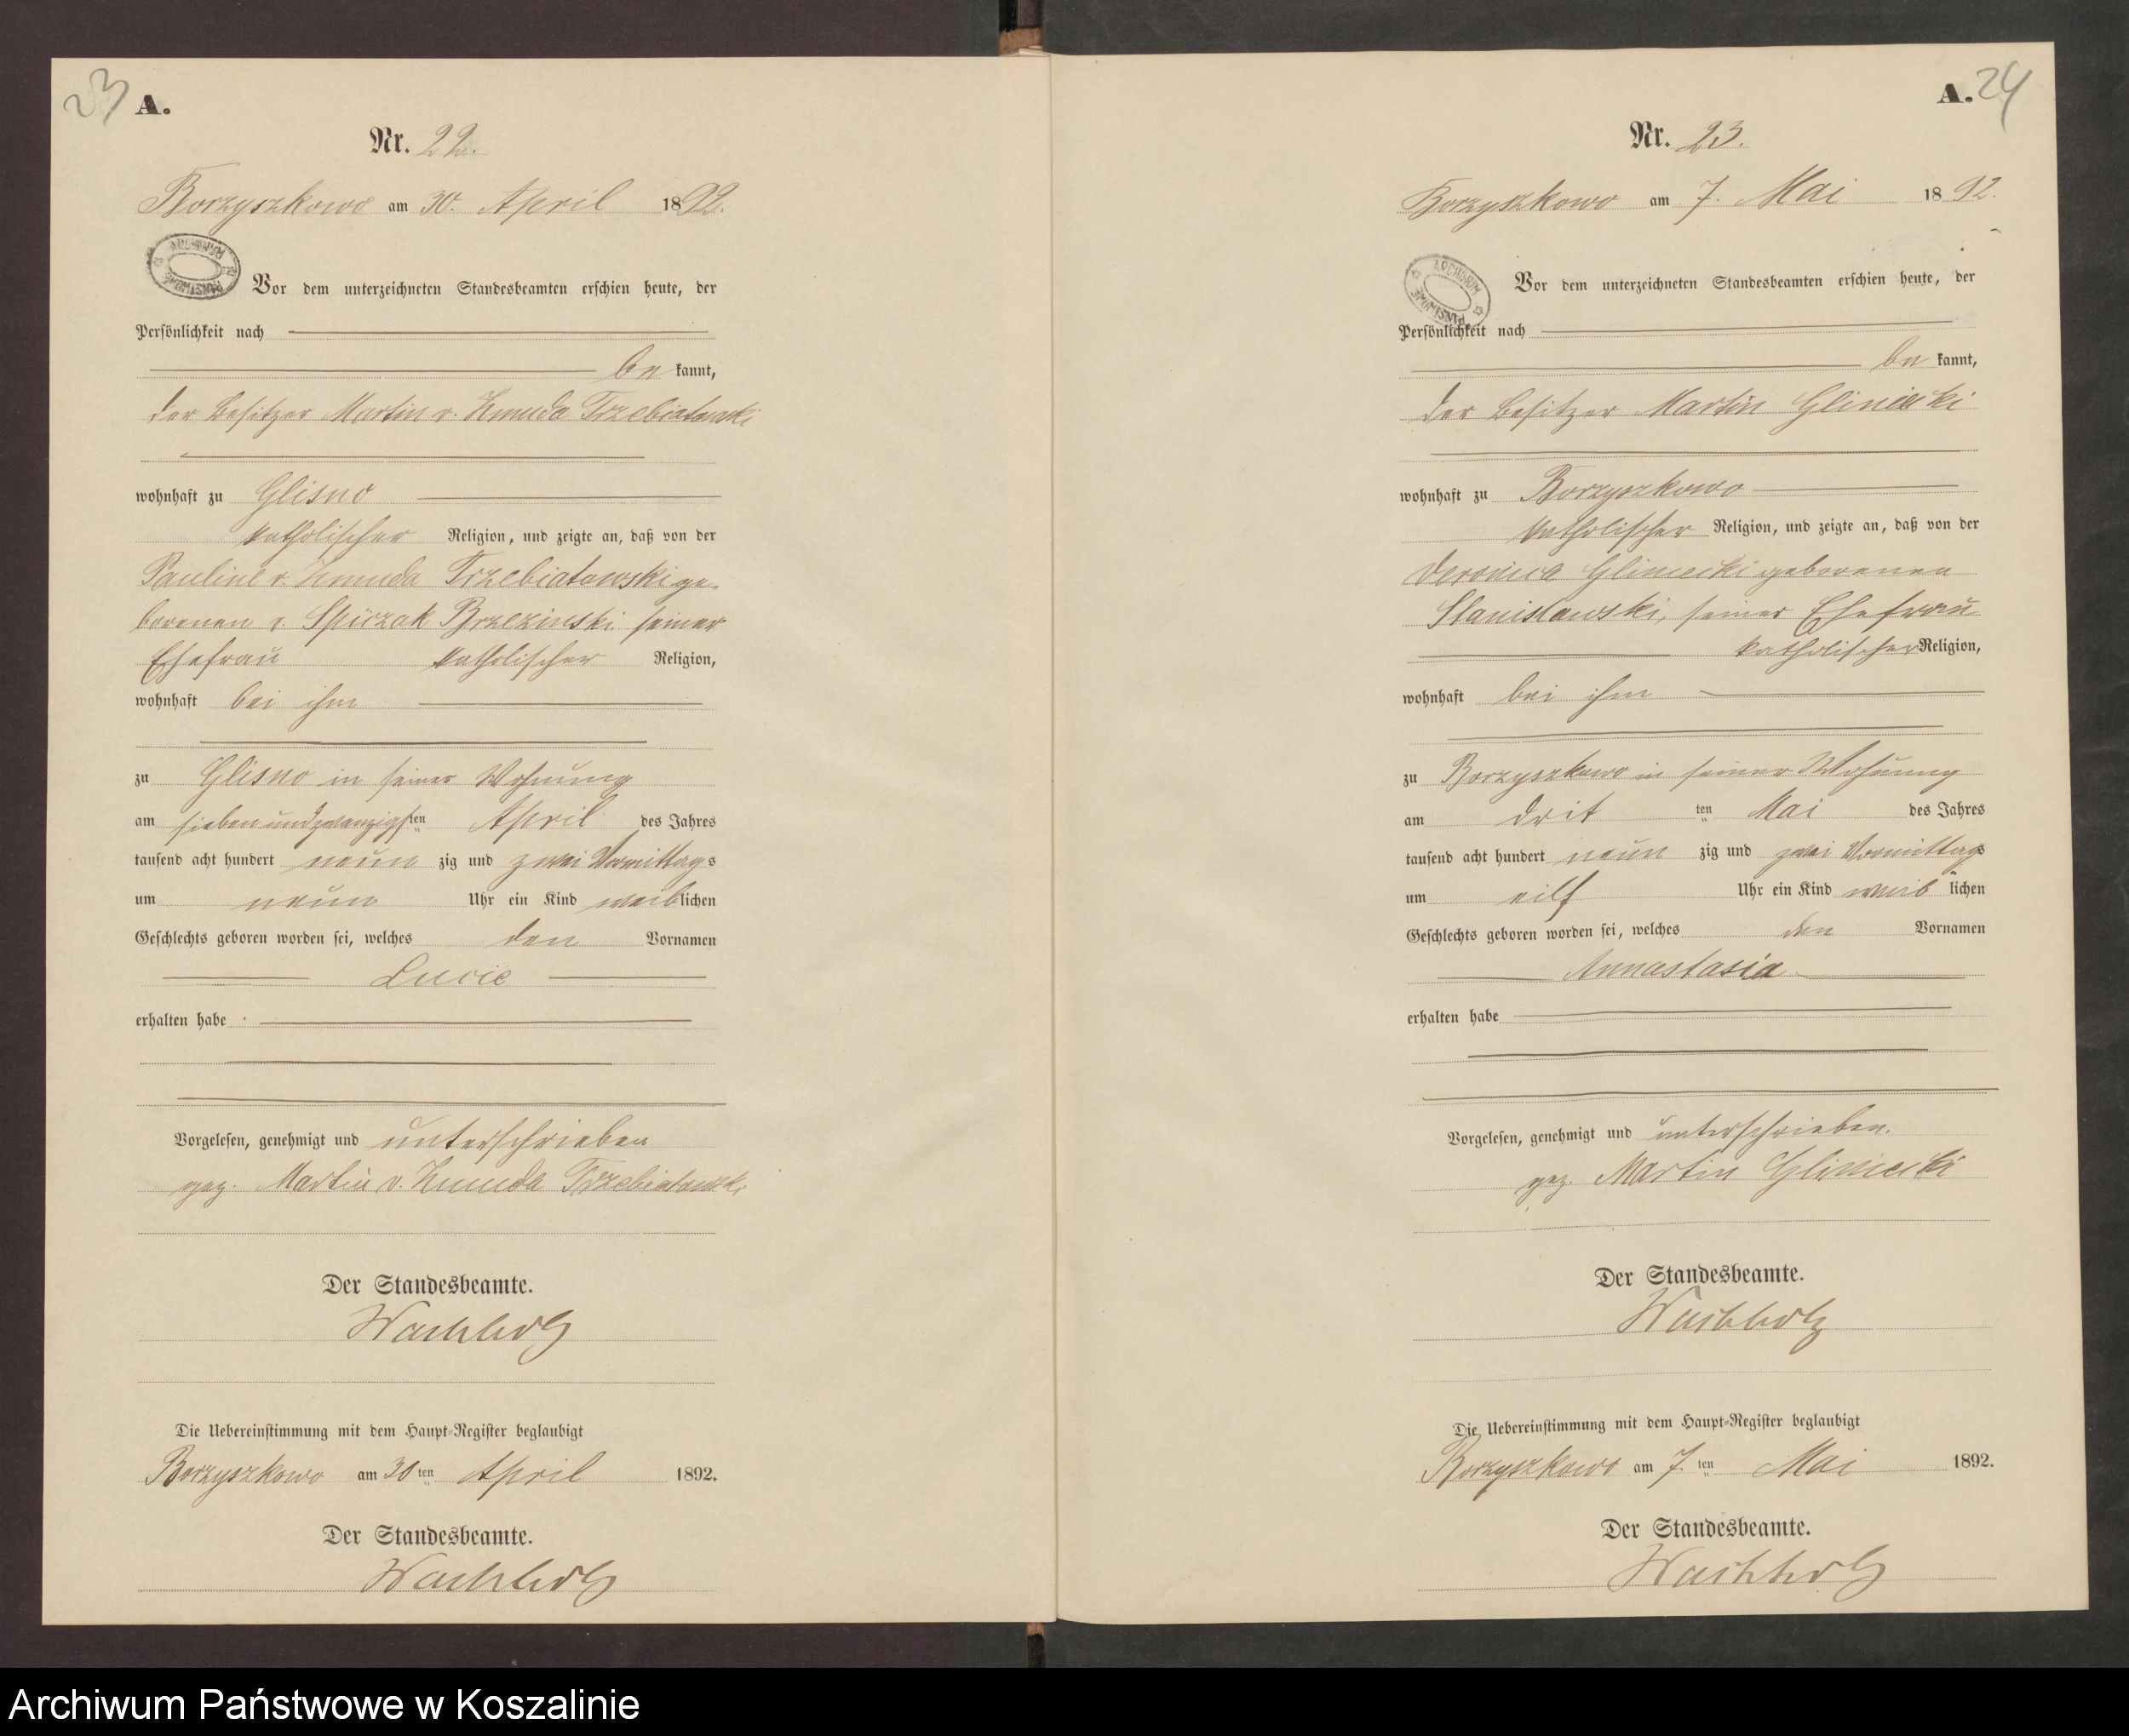 23 A.
Nr. 22.
Borzyszkowo am 30. April 1892.
Vor dem unterzeichneten Standesbeamten erschien heute, der
Persönlichkeit nach
be kannt,
der Besitzer Martin v. Zmuda Trzebiatowski
wohnhaft zu Glisno
katholischer Religion, und zeigte an, daß von der
Pauline v. Zmuda Trzebiatowski ge-
borenen v. Spiczak Brzezinski seiner
Ehefrau katholischer Religion,
wohnhaft bei ihm
zu Glisno in seiner Wohnung
am siebenundzwanzigsten April des Jahres
tausend acht hundert neun zig und zwei Vormittags
um neun Uhr ein Kind weiblichen
Geschlechts geboren worden sei, welches den Vornamen
Lucie
erhalten habe
Vorgelesen, genehmigt und unterschrieben
gez. Martin v. Zmuda Trzebiatowski
Der Standesbeamte.
Wachholz
Die Uebereinstimmung mit dem Haupt-Register beglaubigt
Borzyszkowo am 30ten April 1892.
Der Standesbeamte.
Wachholz
A. 24
Nr. 23.
Borzyszkowo am 7. Mai 1892.
ARCHIWUM PAŃSTWOWE
Vor dem unterzeichneten Standesbeamten erschien heute, der
Persönlichkeit nach
be kannt,
der Besitzer Martin Gliniecki
wohnhaft zu Borzyszkowo
katholischer Religion, und zeigte an, daß von der
Veronica Gliniecki geborenen
Stanislawski, seiner Ehefrau
katholischer Religion,
wohnhaft bei ihm
zu Borzyszkowo in seiner Wohnung
am drit ten Mai des Jahres
tausend acht hundert neun zig und zwei Vormittags
um eilf Uhr ein Kind weib lichen
Geschlechts geboren worden sei, welches den Vornamen
Annastasia
erhalten habe
Vorgelesen, genehmigt und unterschrieben.
gez. Martin Gliniecki
Der Standesbeamte.
Wachholz
Die Uebereinstimmung mit dem Haupt-Register beglaubigt
Borzyszkowo am 7. ten Mai 1892.
Der Standesbeamte.
Wachholz
Archiwum Państwowe w Koszalinie